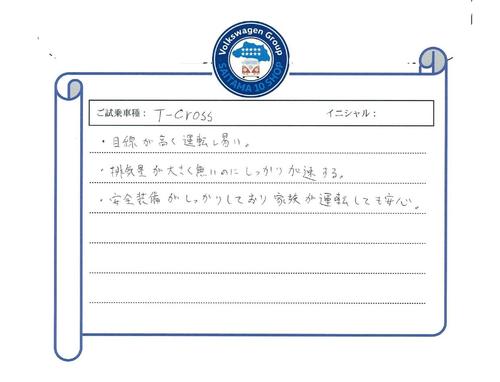 Volkswagen Group
SAITAMA 10 SHOP
ご試乗車種： T-Cross イニシャル：
・目線が高く運転し易い。
・排気量が大きく無いのにしっかり加速する。
・安全装備がしっかりしており家族が運転しても安心。